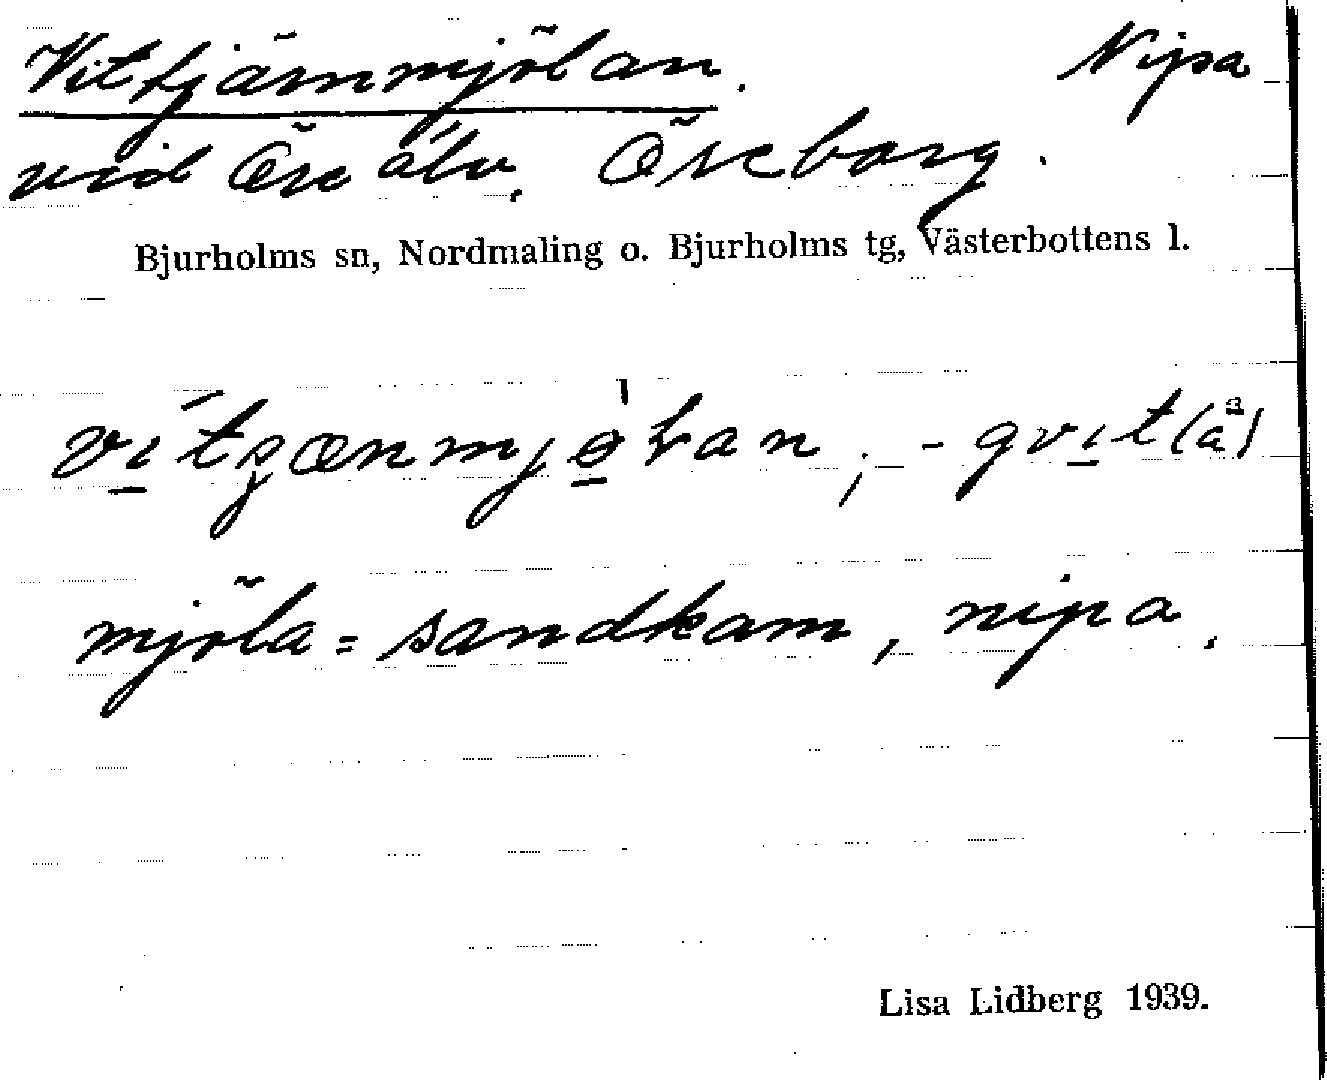 Vittjärnmjölan. Nipa
vid Öre älv, Öreborg.
Bjurholms sn, Nordmaling o. Bjurholms tg, Västerbottens l.
mjöla = sandkam, nipa.
Lisa Lidberg 1939.